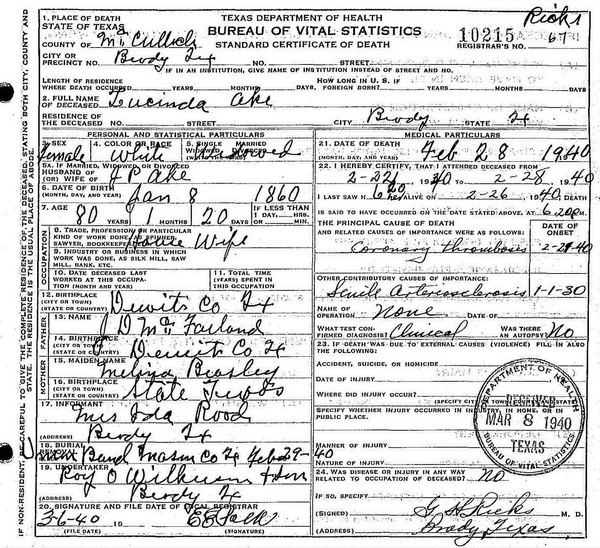 IF NON-RESIDENT, CAREFUL TO GIVE THE COMPLETE RESIDENCE OF THE DECEASED, STATING BOTH CITY, COUNTY AND STATE. THE RESIDENCE IS THE USUAL PLACE OF ABODE.
TEXAS DEPARTMENT OF HEALTH
BUREAU OF VITAL STATISTICS
STANDARD CERTIFICATE OF DEATH
Ricks
10215 67
REGISTRAR'S NO.
1. PLACE OF DEATH
STATE OF TEXAS
COUNTY OF McCulloch
CITY OR PRECINCT NO. Brady Tx NO. STREET
IF IN AN INSTITUTION, GIVE NAME OF INSTITUTION INSTEAD OF STREET AND NO.
LENGTH OF RESIDENCE
WHERE DEATH OCCURRED YEARS MONTHS DAYS HOW LONG IN U. S. IF FOREIGN BORN? YEARS MONTHS DAYS
2. FULL NAME OF DECEASED Lucinda Ake
RESIDENCE OF THE DECEASED NO. STREET CITY Brady Tx
PERSONAL AND STATISTICAL PARTICULARS
3. SEX 4. COLOR OR RACE 5. SINGLE MARRIED WIDOWED DIVORCED
Female White Widowed
5A. IF MARRIED, WIDOWED, OR DIVORCED
HUSBAND OF
(OR) WIFE OF J P Ake
6. DATE OF BIRTH
(MONTH, DAY, AND YEAR) Jan 8 1860
7. AGE YEARS MONTHS DAYS IF LESS THAN 1 DAY
80 1 20 HRS. MIN.
OCCUPATION
8. TRADE, PROFESSION OR PARTICULAR KIND OF WORK DONE, AS SPINNER, SAWYER, BOOKKEEPER House Wife
9. INDUSTRY OR BUSINESS IN WHICH WORK WAS DONE, AS SILK MILL, SAW MILL, BANK, ETC.
10. DATE DECEASED LAST WORKED AT THIS OCCUPATION (MONTH AND YEAR) 11. TOTAL TIME (YEARS) SPENT IN THIS OCCUPATION
12. BIRTHPLACE
(CITY OR TOWN)
(STATE OR COUNTRY) Dewitt Co Tx
FATHER
13. NAME J D McFarland
14. BIRTHPLACE
(CITY OR TOWN)
(STATE OR COUNTRY) Dewitt Co Tx
MOTHER
15. MAIDEN NAME Melina Beasley
16. BIRTHPLACE
(CITY OR TOWN)
(STATE OR COUNTRY) State Texas
17. INFORMANT Mrs Ida Rood
ADDRESS Brady Tx
18. BURIAL
REMOVAL Union Band Mason Co Tx Feb 29-40
19. UNDERTAKER Roy O Wilkerson & Son
(ADDRESS) Brady Tx
20. SIGNATURE AND FILE DATE OF LOCAL REGISTRAR
3-6-40
(FILE DATE) (REGISTRAR)
MEDICAL PARTICULARS
21. DATE OF DEATH
(MONTH, DAY, AND YEAR) Feb 28 1940
22. I HEREBY CERTIFY, THAT I ATTENDED DECEASED FROM
2-22 1940 TO 2-28 1940
I LAST SAW H ALIVE ON 2-26 1940, DEATH
IS SAID TO HAVE OCCURRED ON THE DATE STATED ABOVE, AT 6:20 P.M.
THE PRINCIPAL CAUSE OF DEATH
AND RELATED CAUSES OF IMPORTANCE WERE AS FOLLOWS: DATE OF ONSET
Coronary thrombosis
OTHER CONTRIBUTORY CAUSES OF IMPORTANCE:
Senile Arteriosclerosis 1-1-30
NAME OF OPERATION None DATE OF
WHAT TEST CONFIRMED DIAGNOSIS? Clinical WAS THERE AN AUTOPSY? No
23. IF DEATH WAS DUE TO EXTERNAL CAUSES (VIOLENCE) FILL IN ALSO THE FOLLOWING:
ACCIDENT, SUICIDE, OR HOMICIDE
DATE OF INJURY
WHERE DID INJURY OCCUR?
SPECIFY WHETHER INJURY OCCURRED IN INDUSTRY, IN HOME, OR IN PUBLIC PLACE.
MANNER OF INJURY
NATURE OF INJURY
24. WAS DISEASE OR INJURY IN ANY WAY RELATED TO OCCUPATION OF DECEASED? No
IF SO, SPECIFY
(SIGNED) M. D.
(ADDRESS) Brady Texas
DEPARTMENT OF HEALTH
RECEIVED
MAR 8 1940
TEXAS
BUREAU OF VITAL STATISTICS